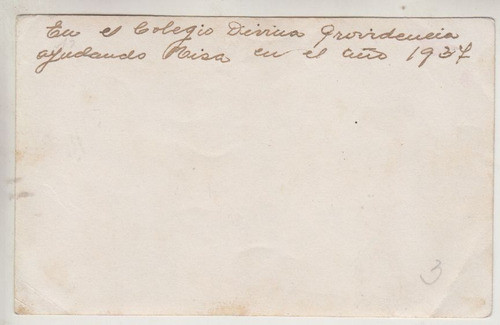 En el Colegio Divina Providencia
ayudando Misa en el año 1937
3